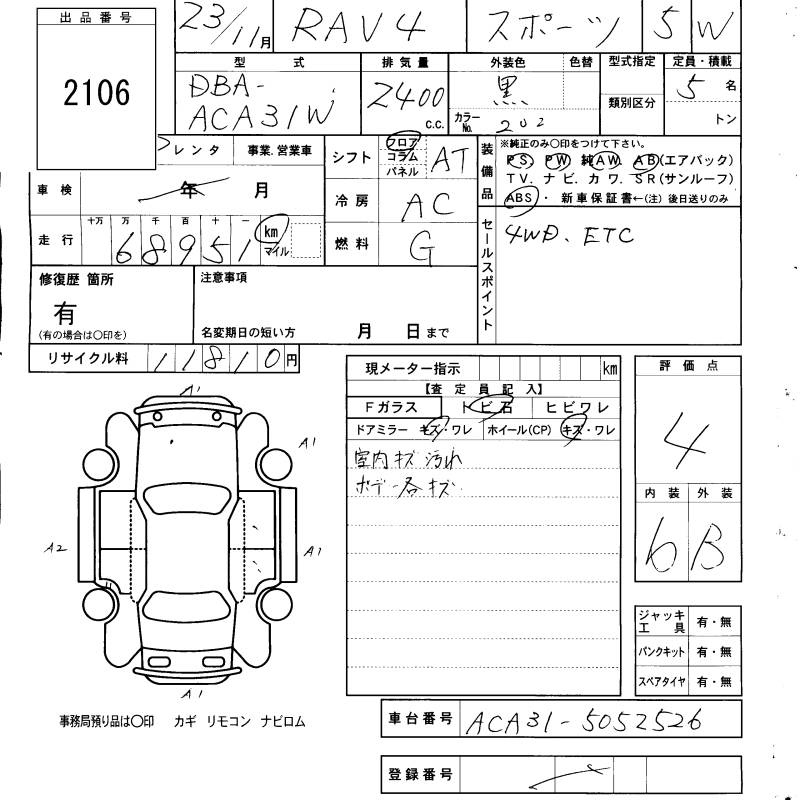 出品番号
2106
23/11月 RAV4 スポーツ 5W
型式 排気量 外装色 色替 型式指定 定員・積載
DBA-ACA31W 2400 c.c. 黒 カラーNo. 202 類別区分 5名
トン
レンタ 事業.営業車 シフト フロア コラム パネル AT
装備品 ※純正のみ〇印をつけて下さい。
PS PW 純AW AB(エアバック)
TV. ナビ. カワ. SR(サンルーフ)
ABS・ 新車保証書←(注) 後日送りのみ
車検 年 月 冷房 AC
十万 万 千 百 十 一
走行 68951 km マイル 燃料 G
セールスポイント 4WD. ETC
修復歴 箇所 注意事項
有
(有の場合は〇印を) 名変期日の短い方 月 日まで
リサイクル料 11810円
現メーター指示 km
【査定員記入】
Fガラス トビ石 ヒビワレ
ドアミラー キズ・ワレ ホイール(CP) キズ・ワレ
室内キズ汚れ
ボデー各キズ
評価点
4
内装 外装
6 B
A1
A1
A2 A1
A1
ジャッキ工具 有・無
パンクキット 有・無
スペアタイヤ 有・無
事務局預り品は〇印 カギ リモコン ナビロム
車台番号 ACA31-5052526
登録番号